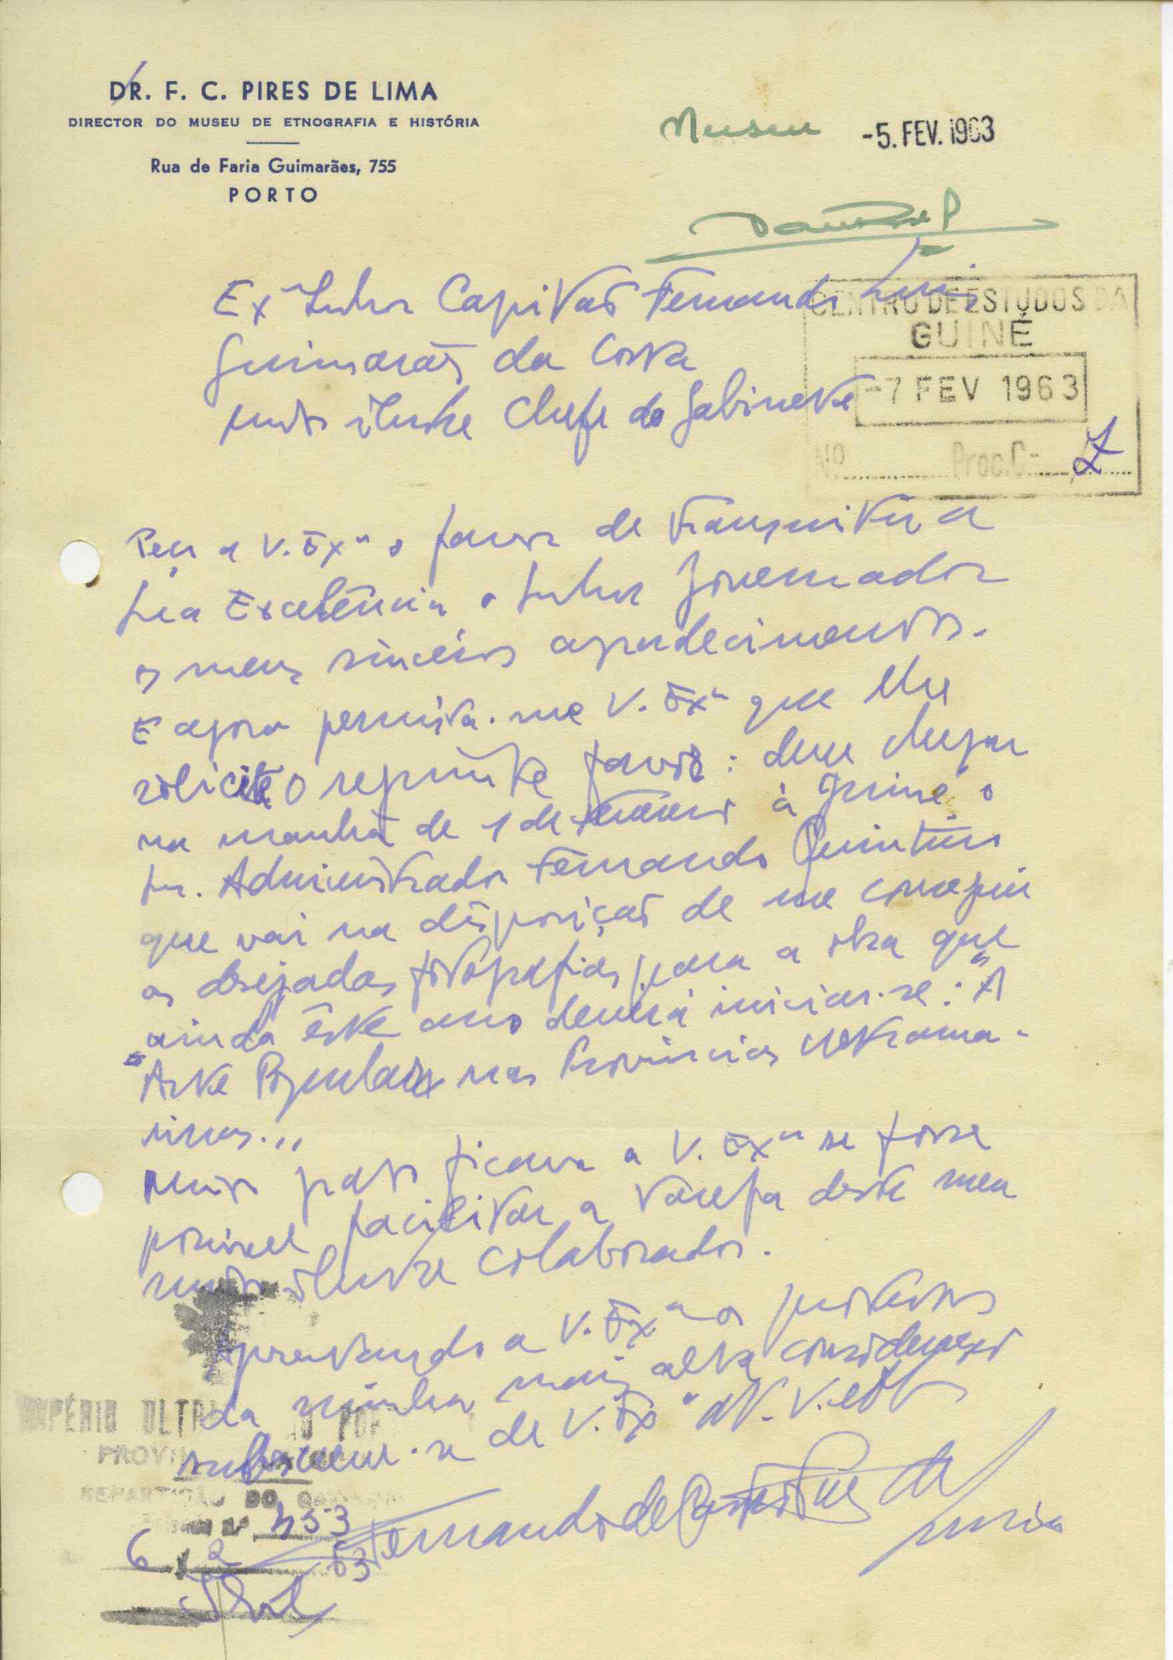 DR. F. C. PIRES DE LIMA
DIRECTOR DO MUSEU DE ETNOGRAFIA E HISTÓRIA
Rua de Faria Guimarães, 755
PORTO
Museu -5. FEV. 1963
Exmo Senhor Capitão Fernando Luiz
Guimarães da Costa
muito ilustre Chefe do Gabinete
CENTRO DE ESTUDOS DA
GUINÉ
-7 FEV 1963
Nº Proc. C-
Peço a V. Exª o favor de transmitir a
Sua Excelência o Senhor Governador
os meus sinceros agradecimentos.
E agora permita-me V. Exª que lhe
solicite o seguinte favor: deve chegar
na manhã de 1 de à Guiné o
Sr. Administrador Fernando Quintino
que vai na disposição de me conseguir
as desejadas fotografias para a obra que
ainda êste ano deverá iniciar-se: "A
Arte Popular nas Províncias Ultrama-
rinas"
Muito grato ficava a V. Exª se fosse
possivel facilitar a tarefa deste meu
muito ilustre colaborador.
Apresentando a V. Exª os protestos
da minha mais alta consideração
subscreve-se de V. Exª
Fernando de Castro Pires de
Lima
IMPÉRIO
REPARTIÇÃO DO
6 2 63